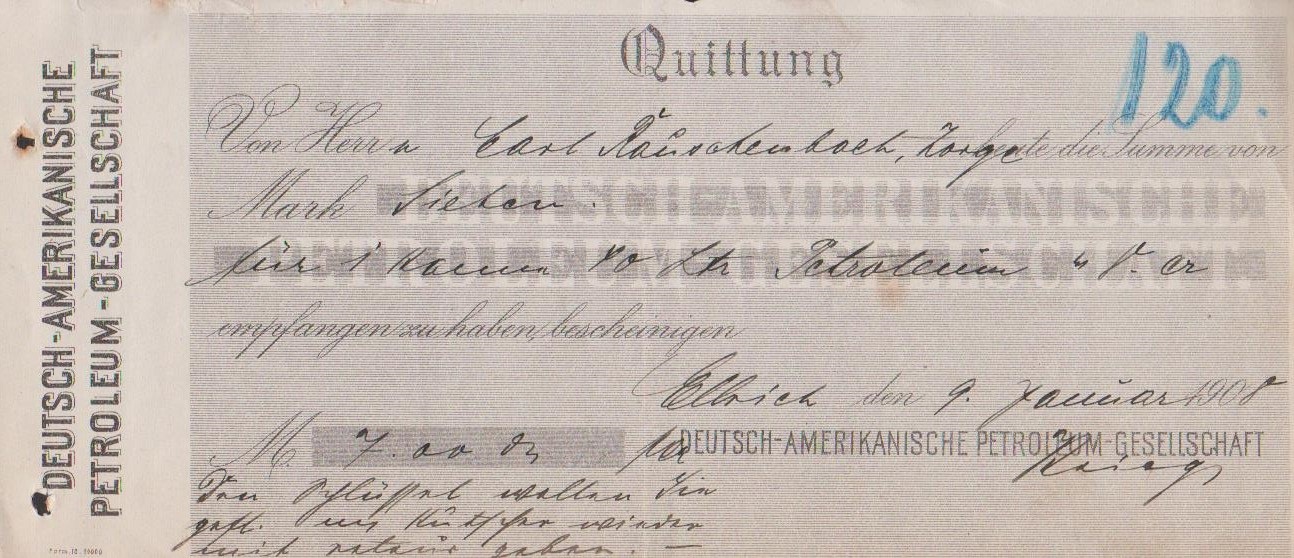 DEUTSCH-AMERIKANISCHE
PETROLEUM-GESELLSCHAFT
Quittung
120.
Von Herrn Carl Rauschenbach, Zorge heute die Summe von
Mark Sieben.
für 1 Kanne 40 Ltr Petroleum
empfangen zu haben, bescheinigen
Ellrich den 9. Januar 1908
M. 7.00 DEUTSCH-AMERIKANISCHE PETROLEUM-GESELLSCHAFT
Den Schlüssel wollen Sie
gefl. Kutscher wieder
mit retour geben. —
Form. 18.